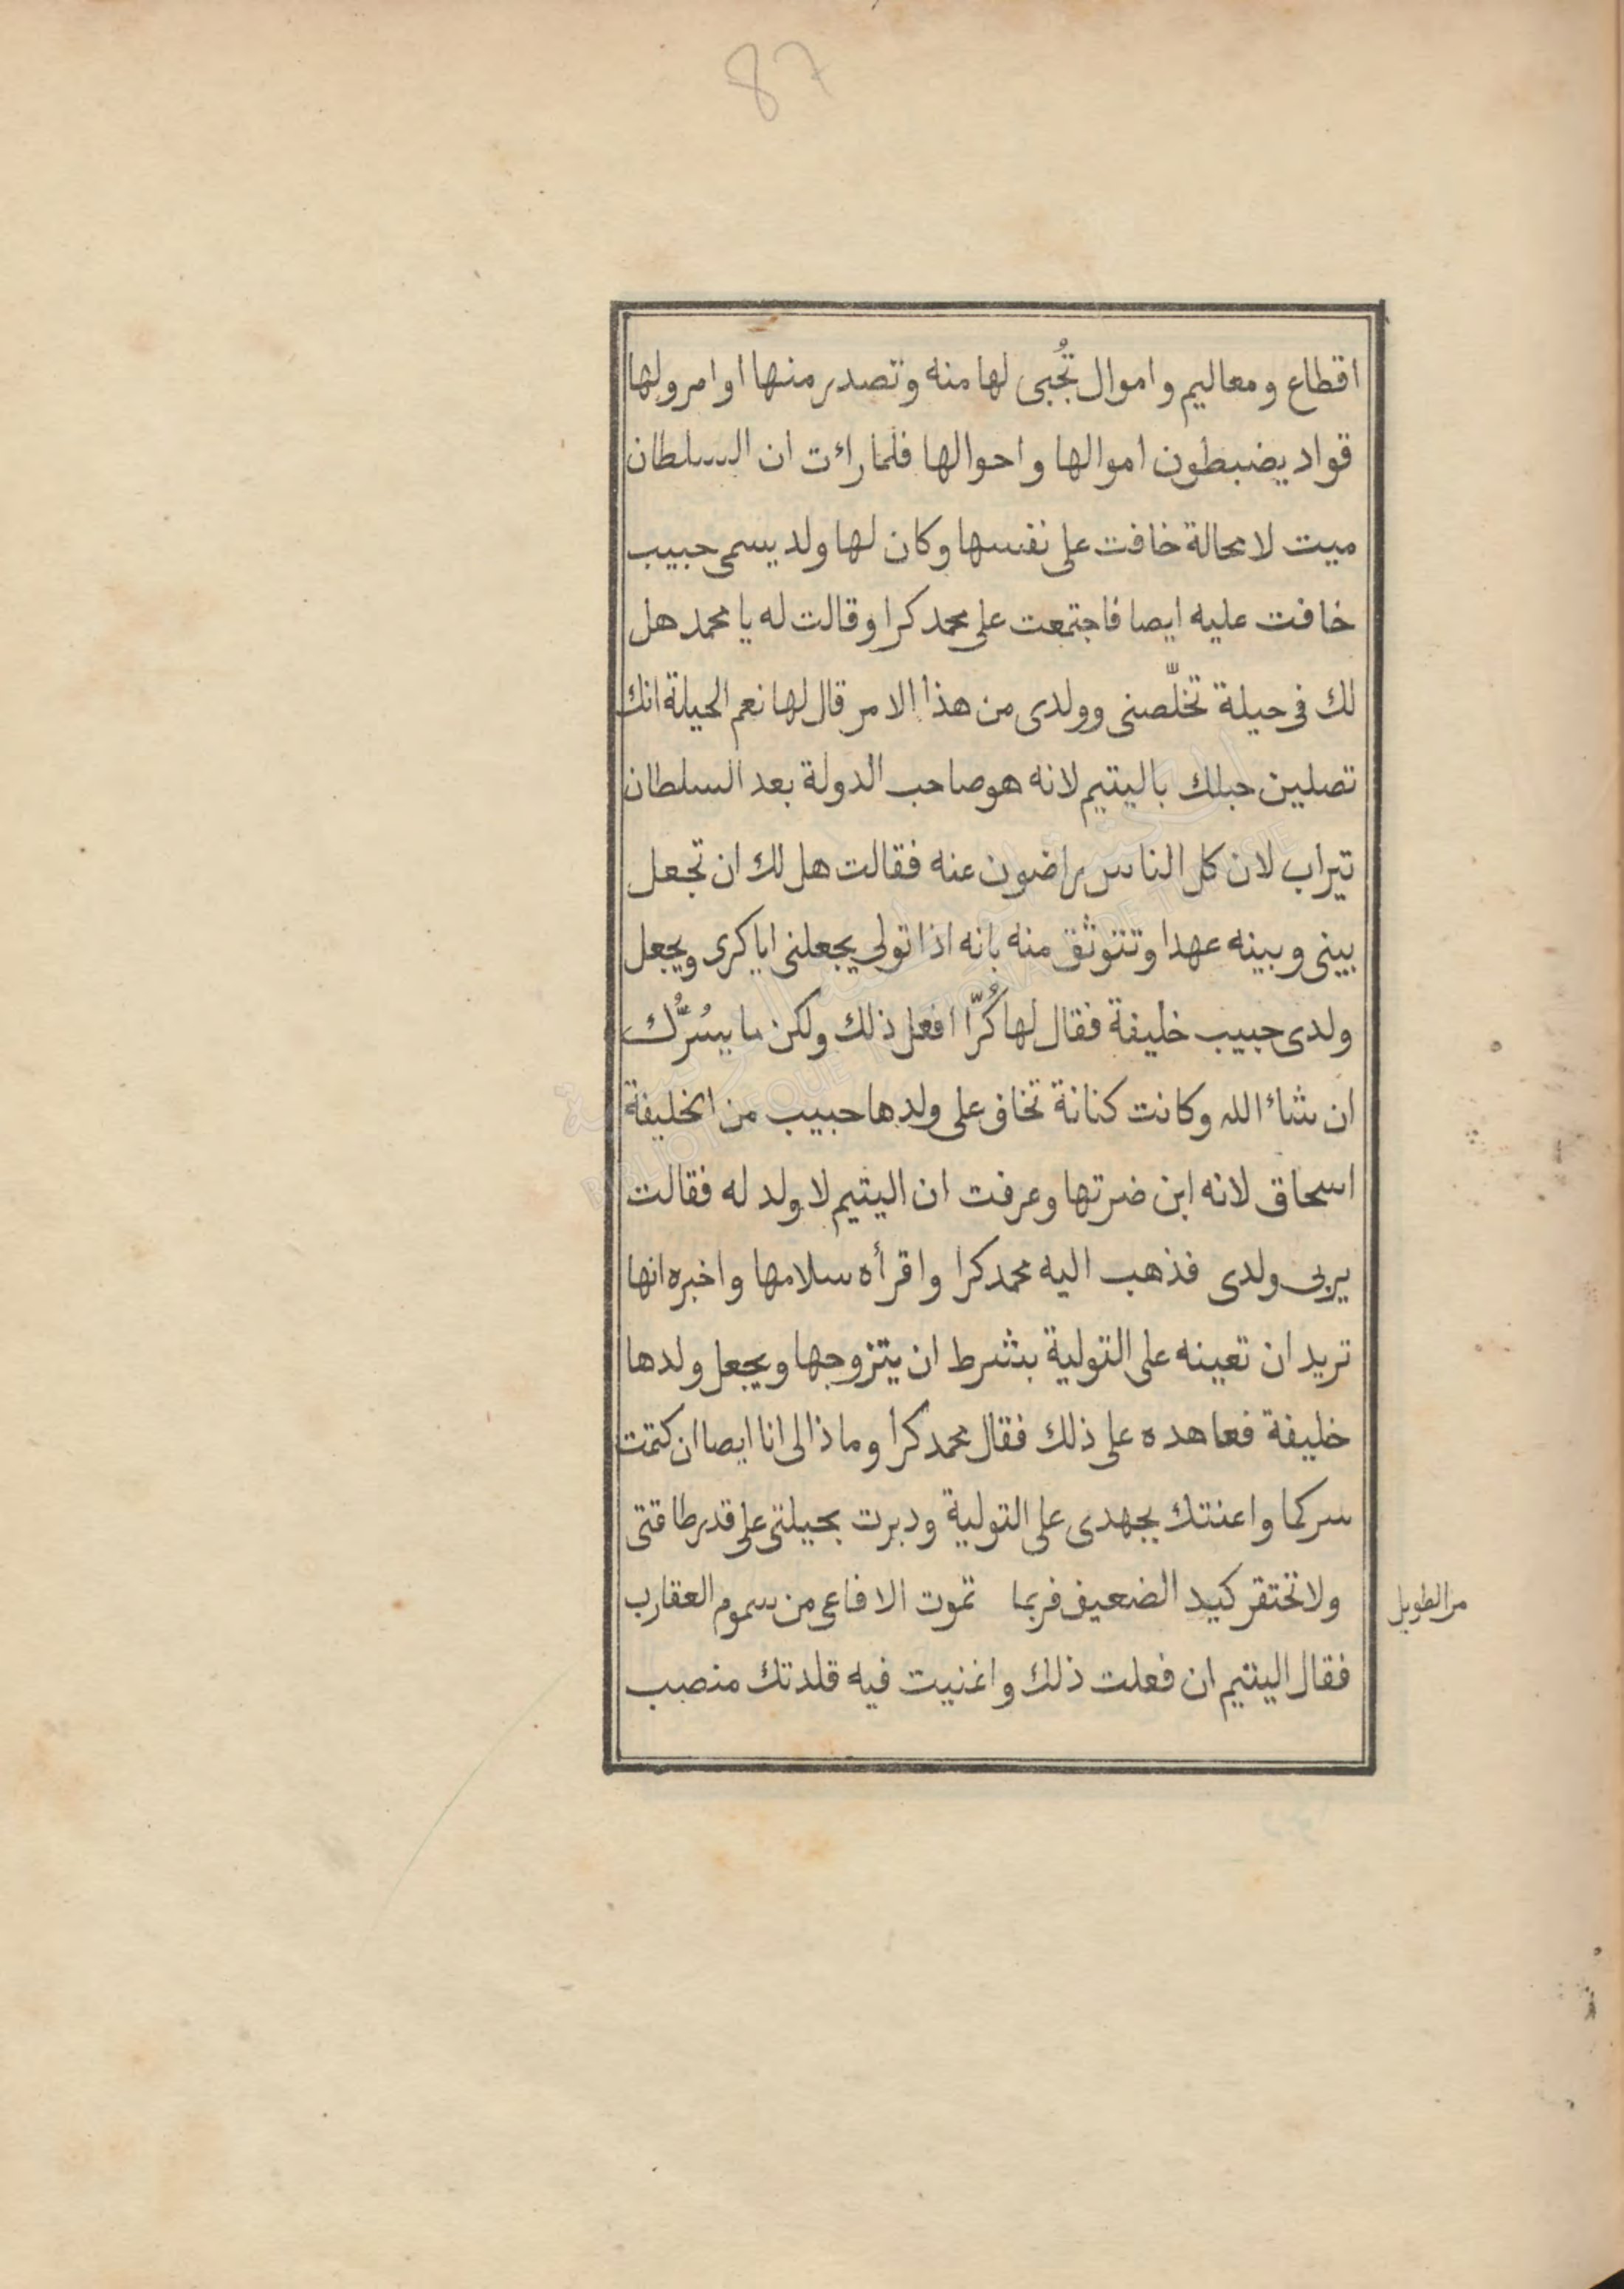 87
اقطاع ومعاليم واموال تُجبى لها منه وتصدر منها اوامر ولها
قواد يضبطون اموالها واحوالها فلما رائت ان السلطان
ميت لا محالة خافت على نفسها وكان لها ولد يسمى حبيب
خافت عليه ايصا فاجتمعت على محمد كرا وقالت له يا محمد هل
لك فى حيلة تخلّصنى وولدى من هذا الامر قال لها نعم الحيلة انك
تصلين حبلك باليتيم لانه هو صاحب الدولة بعد السلطان
تيراب لان كل الناس راضون عنه فقالت هل لك ان تجعل
بينى وبينه عهدا وتتوثق منه بانه اذا تولى يجعلنى اياكرى ويجعل
ولدى حبيب خليفة فقال لها كُرّا افعل ذلك ولكن ما يسُرُّك
ان شاء الله وكانت كنانة تخاف على ولدها حبيب من الخليفة
اسحاق لانه ابن ضرتها وعرفت ان اليتيم لا ولد له فقالت
يربى ولدى فذهب اليه محمد كرا واقرأه سلامها واخبره انها
تريد ان تعينه على التولية بشرط ان يتزوجها ويجعل ولدها
خليفة فعاهده على ذلك فقال محمد كرا وما ذا لى انا ايصا ان كتمت
سركما واعنتك بجهدى على التولية ودبرت بحيلتى على قدر طاقتى
ولا تحتقر كيد الضعيف فربما تموت الافاعى من سموم العقارب
من الطويل
فقال اليتيم ان فعلت ذلك واغنيت فيه قلدتك منصب
المكتبة الوطنية التونسية
BIBLIOTHEQUE NATIONALE DE TUNISIE